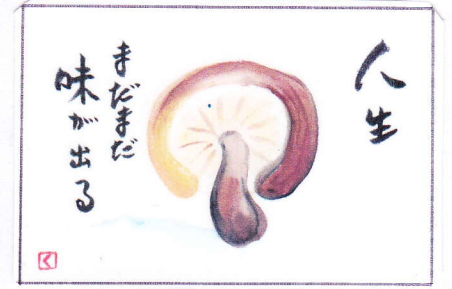 人生
まだまだ
味が出る
く